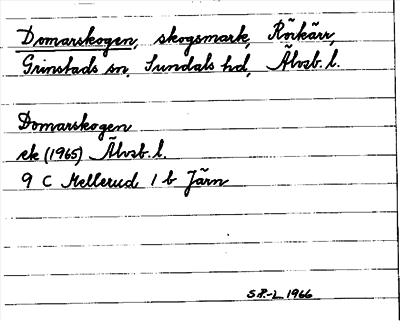 Domarskogen, skogsmark, Rörkärr,
Grinstads sn, Sundals hd, Älvsb. l.
Domarskogen
ek (1965) Älvsb. l.
9 C Mellerud 1 b Järn
S.P.-L 1966